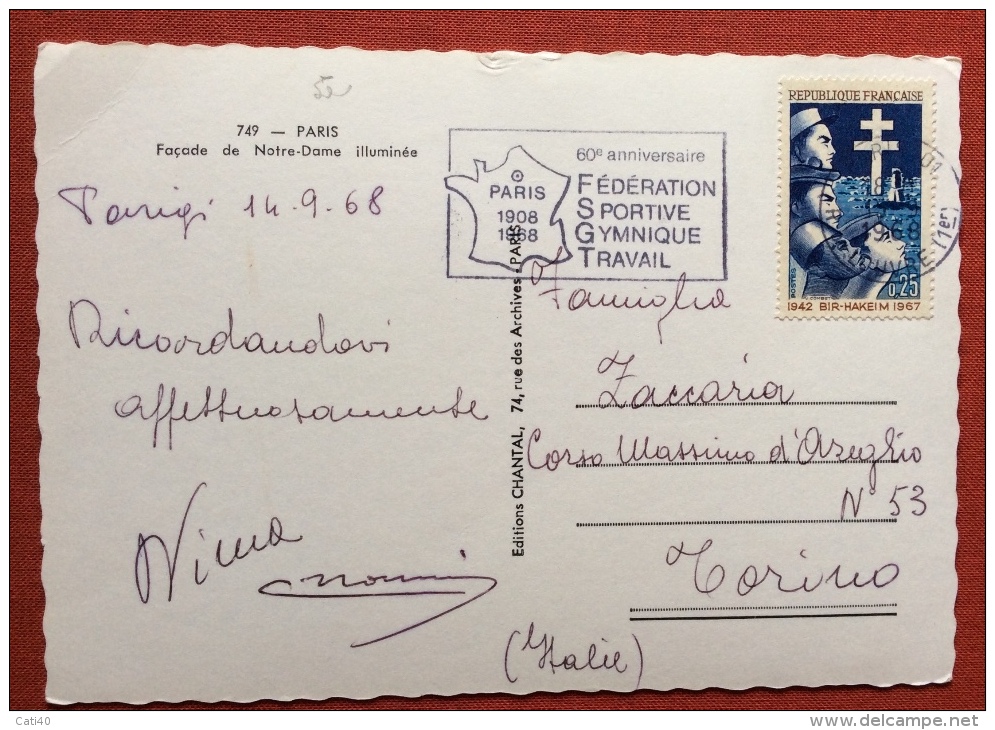 749 — PARIS
Façade de Notre-Dame illuminée
Parigi 14.9.68
Ricordandovi
affettuosamente
60e anniversaire
PARIS
1908
1968
FÉDÉRATION
SPORTIVE
GYMNIQUE
TRAVAIL
REPUBLIQUE FRANÇAISE
POSTES
0,25
1942 BIR-HAKEIM 1967
18
1968
LOUVRE (1er)
Editions CHANTAL, 74, rue des Archives, PARIS
Famiglia
Zaccaria
Corso Massimo d'Azeglio
N° 53
Torino
(Italie)
Cati40
www.delcampe.net